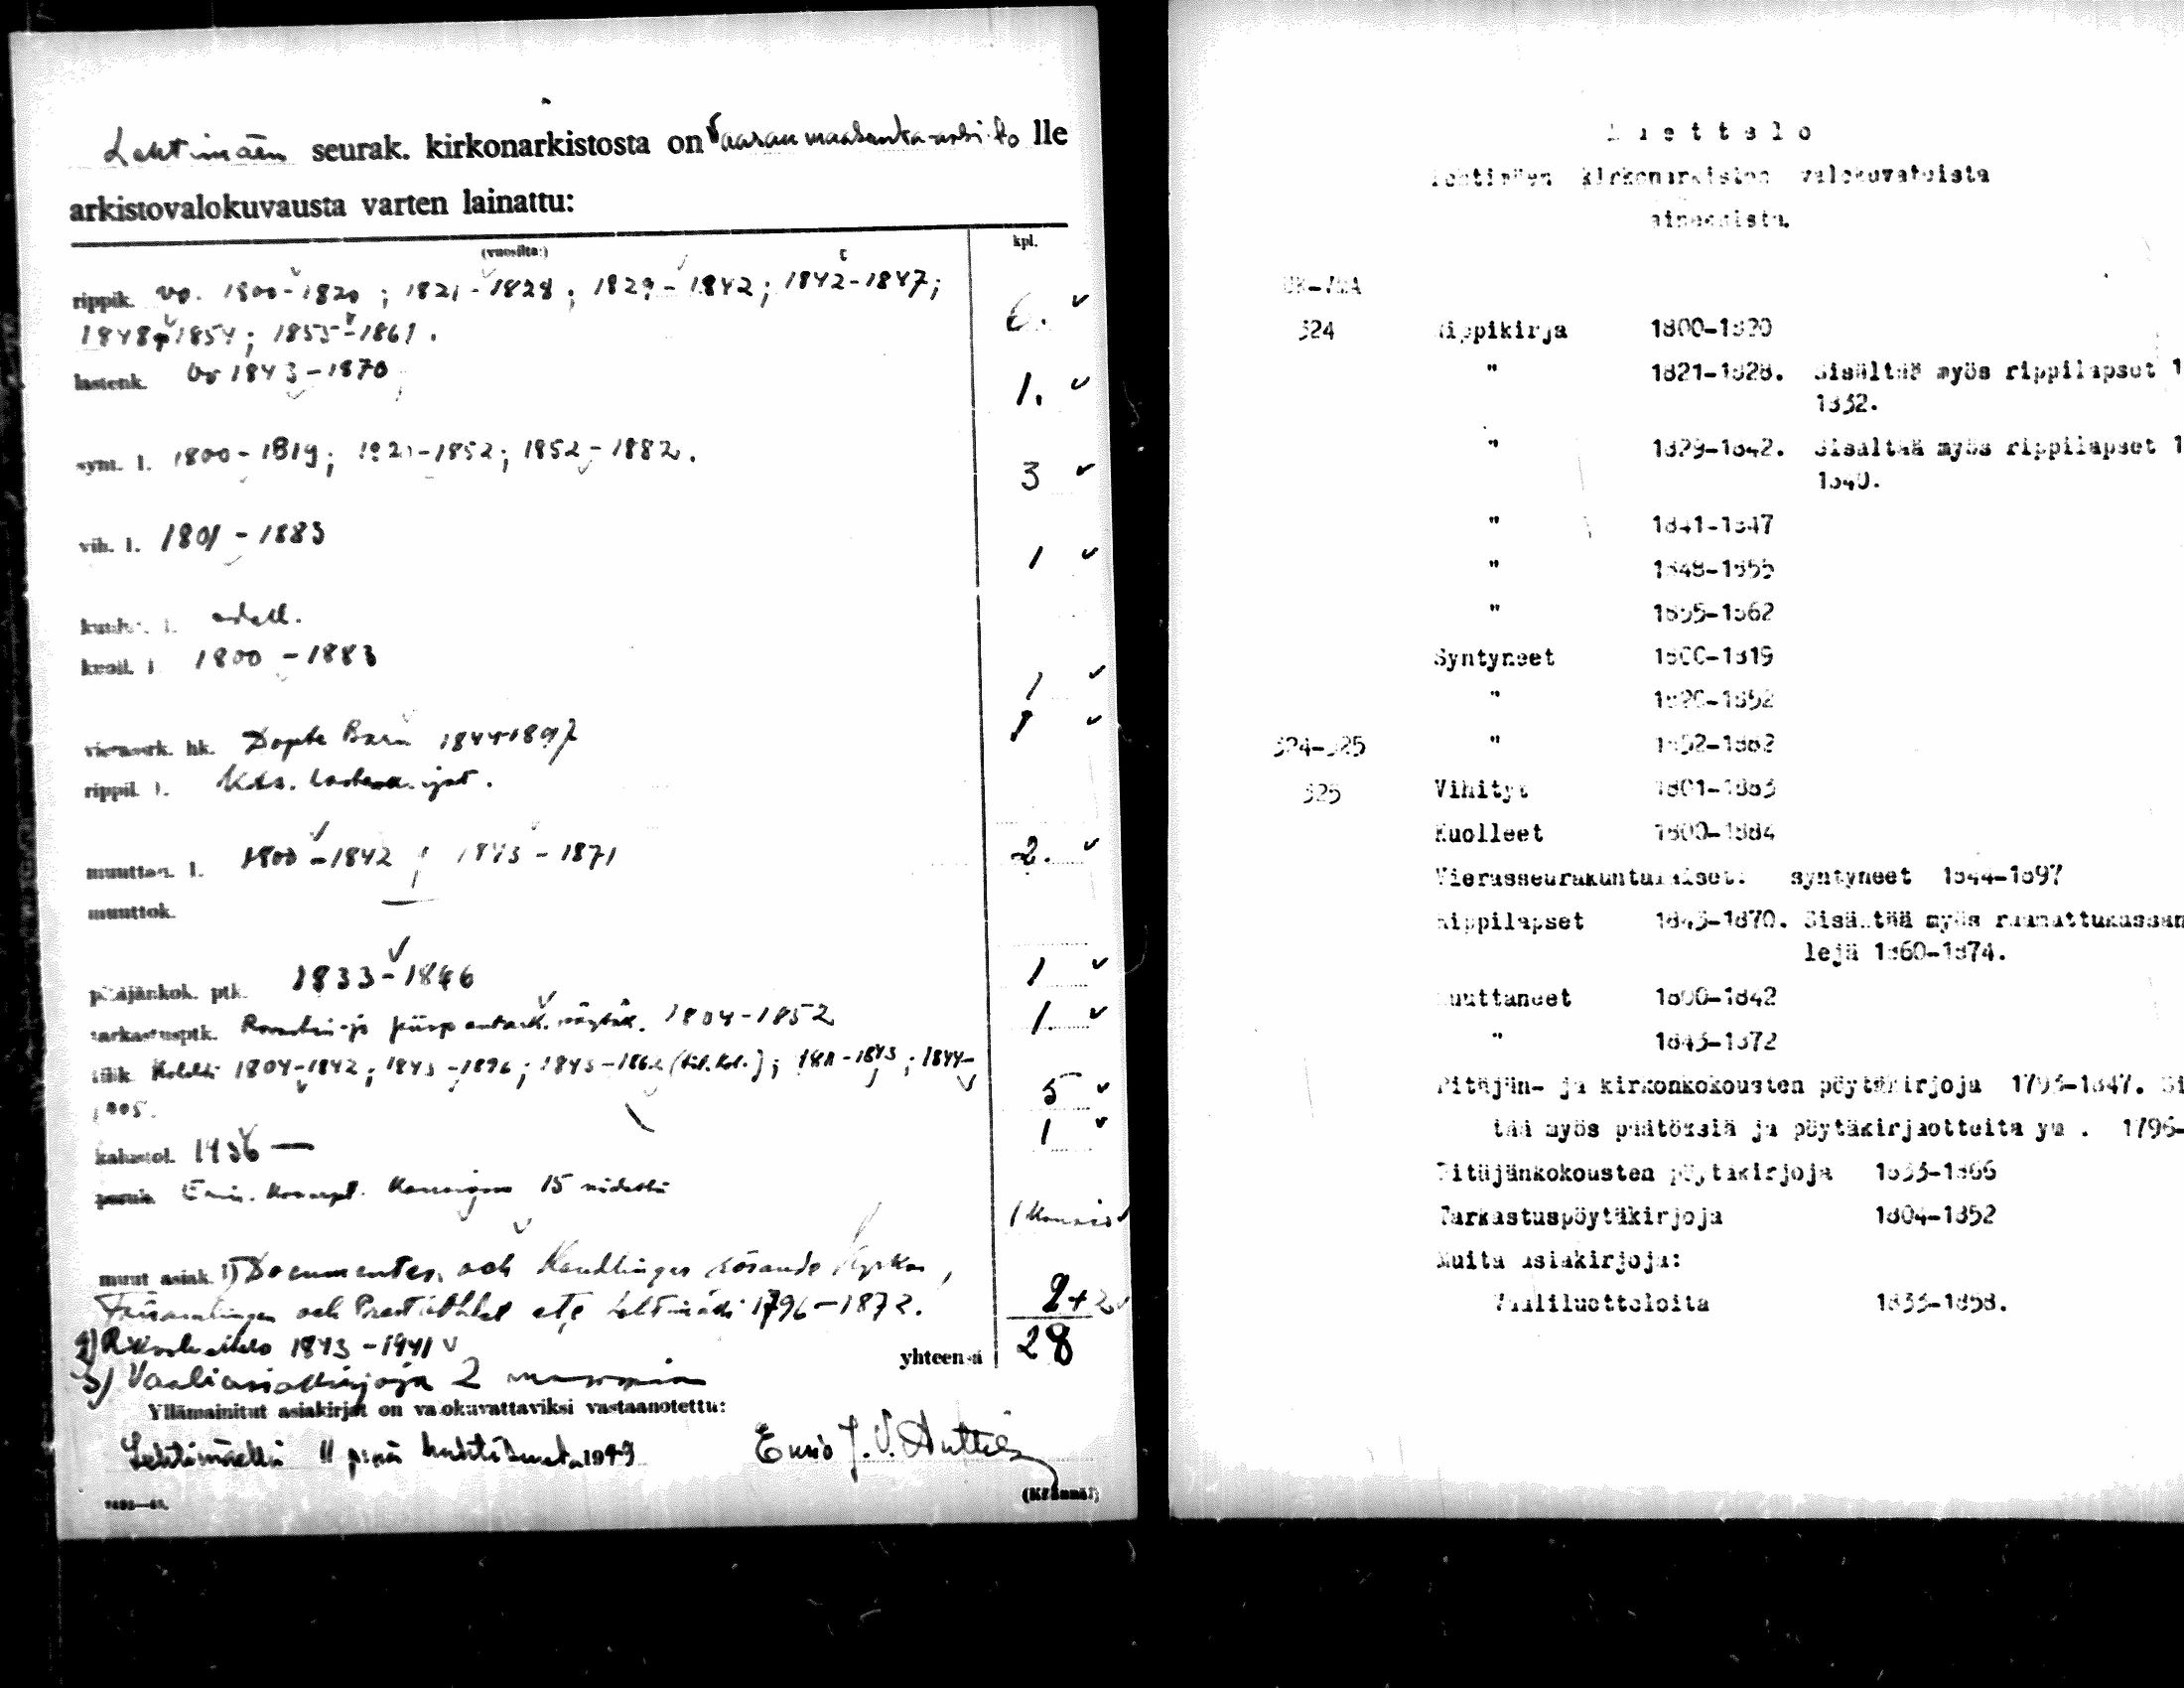 Lehtimäen seurak. kirkonarkistosta on Vaasan maakunta-arkisto lle
arkistovalokuvausta varten lainattu:
(vuosilta:)
kpl.
rippik. vv. 1800-1820; 1821-1828; 1829-1842; 1842-1847; 6.
1848-1854; 1855-1861.
lastenk. vv 1843-1870 1.
synt. l. 1800-1819; 1820-1852; 1852-1882. 3
vih. l. 1801-1883 1
kuulut. l. edell.
kuoll. l. 1800-1883 1
vierasrk. hk. Döpte Barn 1844-1897 1
rippil. l. Kts. lastenk.
muuttan. l. 1800-1842; 1843-1871 2.
muuttok.
pitäjänkok. ptk. 1833-1866 1
tarkastusptk. 1804-1852 1
tilik. 1804-1842; 1843-1896; 1843-1862; 1811-1843; 1844- 5
1905.
kalustol. 1936 — 1
15 nidettä
muut asiak. 1) Documenter och Handlingar rörande Kyrkan,
Församlingen och etc Lehtimäki 1796-1872. 2+2
2) 1843-1941
3) Vaaliasiakirjoja 2
yhteensä 28
Yllämainitut asiakirjat on valokuvattaviksi vastaanotettu:
Lehtimäellä 11 p:nä huhtikuuta 1949 Ensio J. V. Anttila
(Käännä!)
Luettelo
Lehtimäen kirkonarkiston valokuvatuista
aineksista.
324 Rippikirja 1800-1820
" 1821-1828. Sisältää myös rippilapset 1
1832.
" 1829-1842. Sisältää myös rippilapset 1
1840.
" 1841-1847
" 1848-1855
" 1855-1862
Syntyneet 1800-1819
" 1820-1852
324-325 " 1852-1882
325 Vihityt 1801-1883
Kuolleet 1800-1884
Vierasseurakuntalaiset: syntyneet 1844-1897
Rippilapset 1843-1870. Sisältää myös
lejä 1860-1874.
Muuttaneet 1800-1842
" 1843-1872
Pitäjän- ja kirkonkokousten pöytäkirjoja 1793-1847. Si
tää myös päätöksiä ja pöytäkirjaotteita ym. 1796-
Pitäjänkokousten pöytäkirjoja 1833-1866
Tarkastuspöytäkirjoja 1804-1852
Muita asiakirjoja:
Vaaliluetteloita 1833-1858.